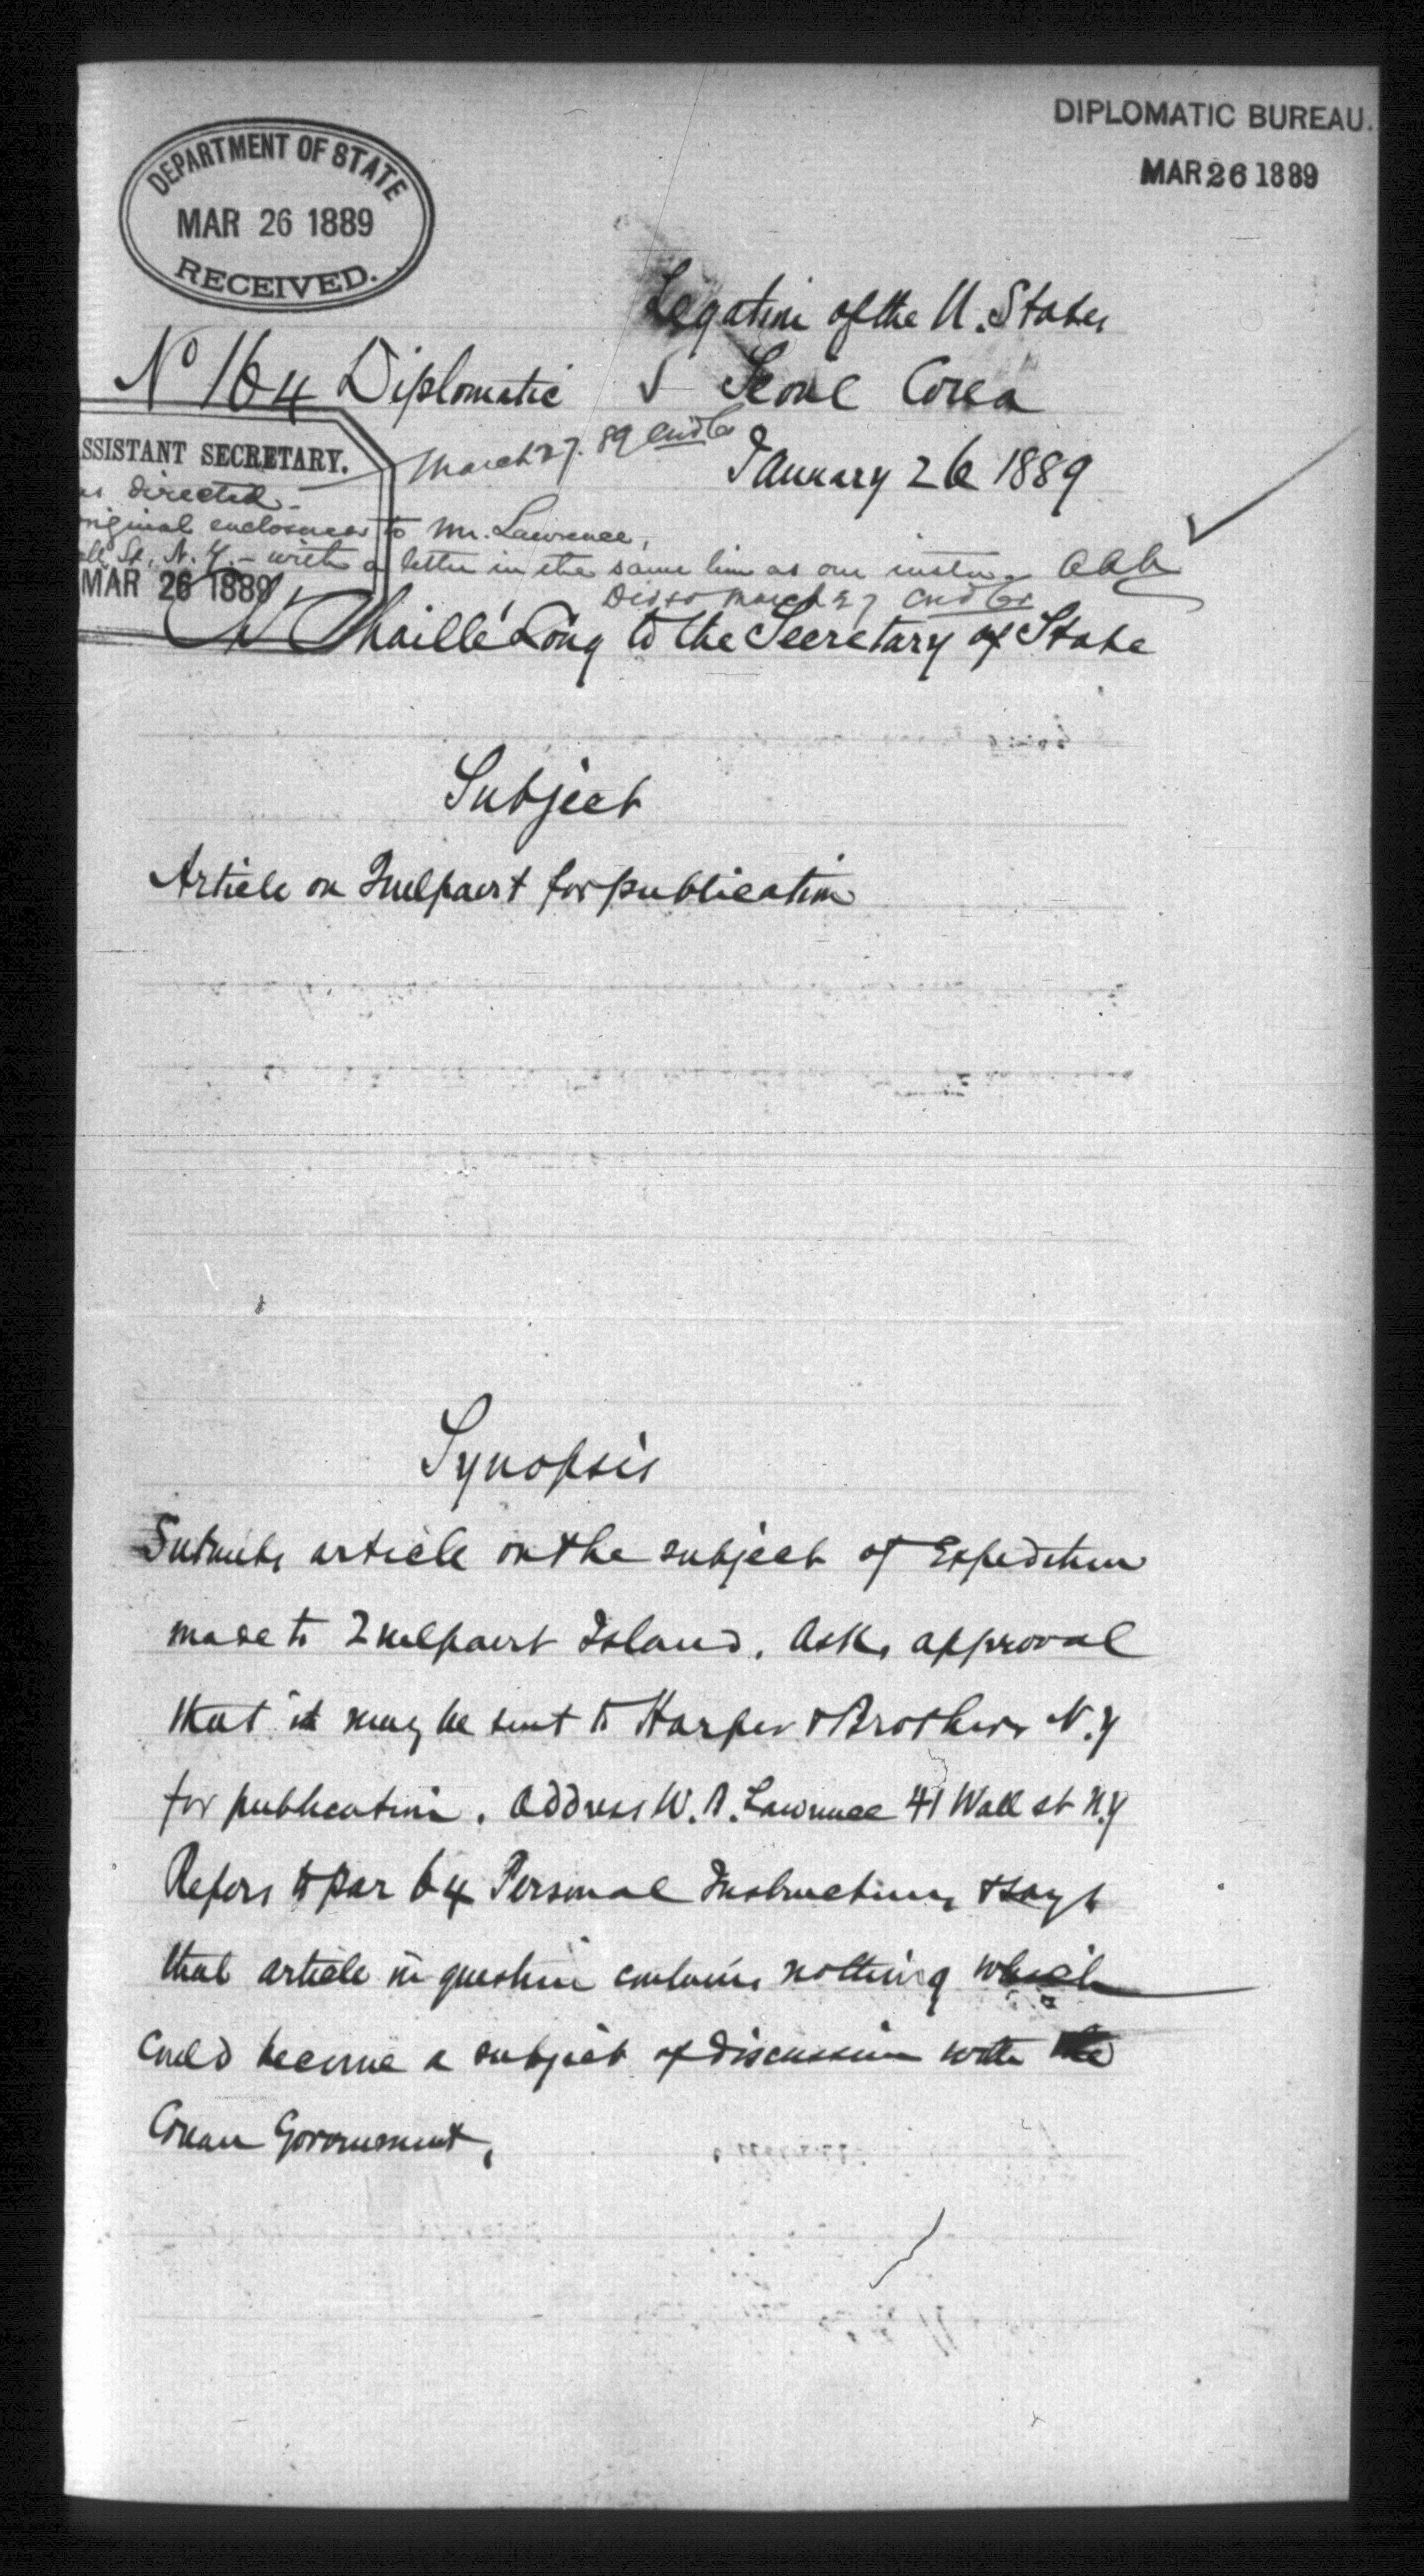 DIPLOMATIC BUREAU.
MAR 26 1889
DEPARTMENT OF STATE
MAR 26 1889
RECEIVED.
Legation of the U. States
No 164 Diplomatic Seoul Corea
March 27. 89
January 26 1889
SSISTANT SECRETARY.
directed
original enclosures to Mr. Lawrence,
St, N. Y. - with a letter in the same line as our
MAR 26 1889
March 27
Chaillé Long to the Secretary of State
Subject
Article on Quelpaert for publication
Synopsis
Submits article on the subject of Expedition
made to Quelpaert Island. Asks approval
that it may be sent to Harper & Brothers N.Y
for publication. Address W. B. Lawrence 41 Wall st N.Y
Refers to par 64 Personal Instructions & says
that article in question contains nothing which
could become a subject of discussion with the
Corean Government.